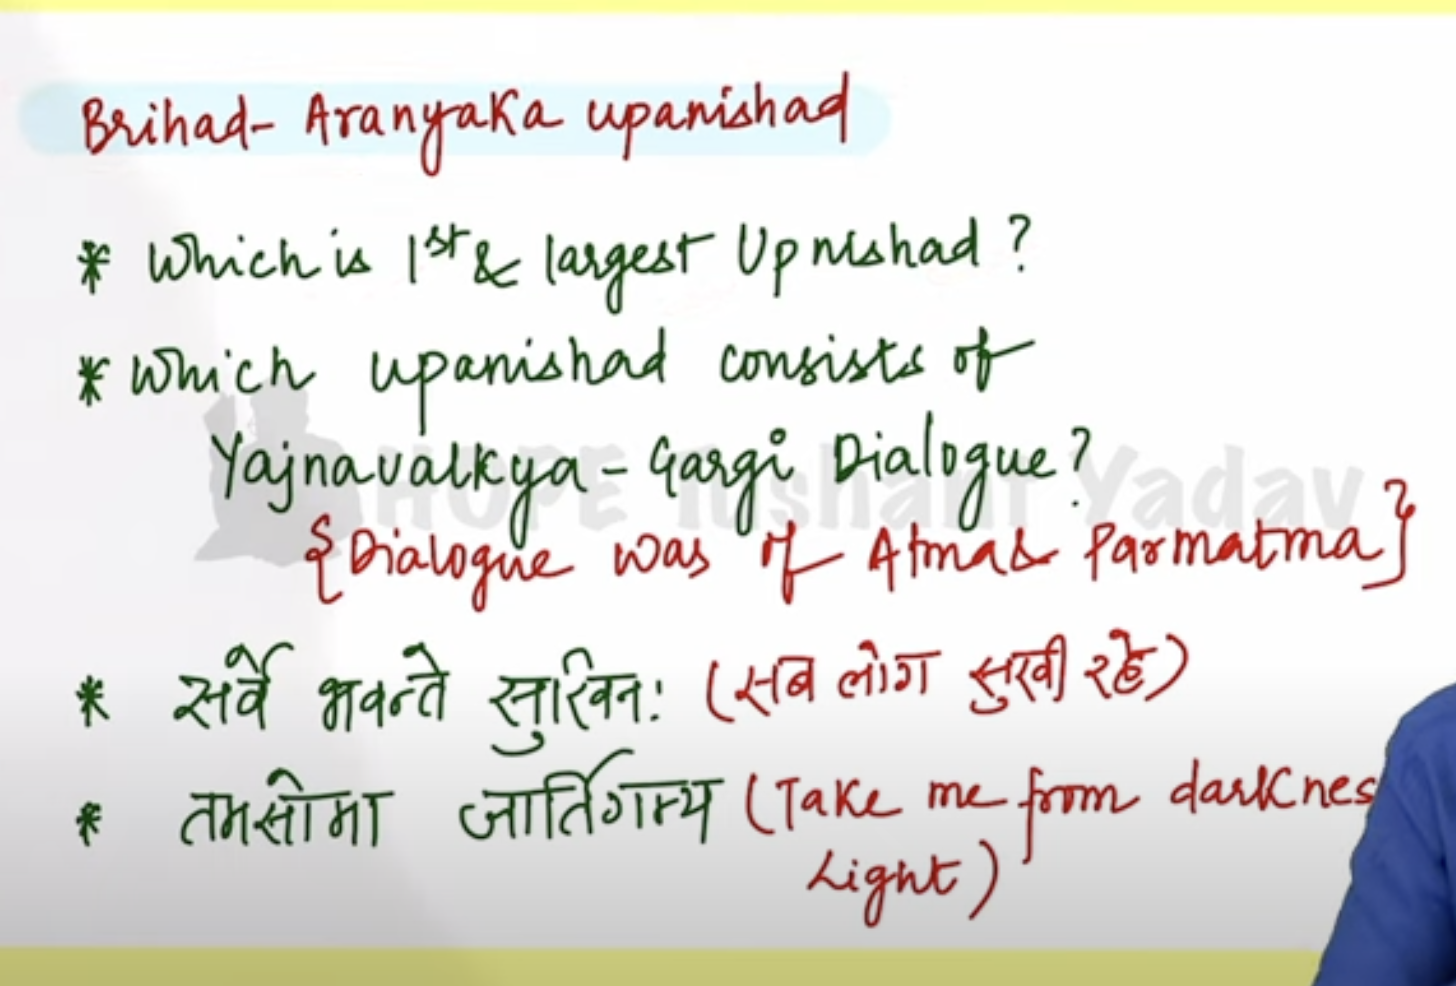 Brihad- Aranyaka upanishad
* Which is 1st & largest Upnishad ?
* Which upanishad consists of
Yajnavalkya - Gargi Dialogue ?
HOPE Tushant Yadav
{Dialogue was of Atma & Parmatma}
* सर्वे भवन्ते सुखिन: (सब लोग सुखी रहे)
* तमसोमा जार्तिगम्य (Take me from darknes
Light)